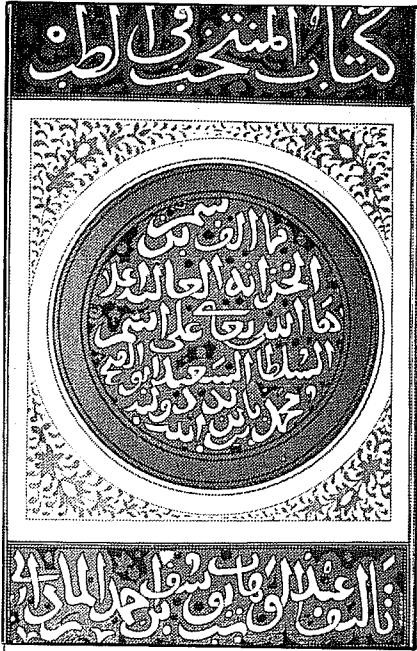 كتاب المنتخب في الطب
مما الف برسم
الخزانة العالية اعلا
ها الله تعالى على اسم
السلطا السعيد ابو الفتح
محمد بن
باس الله
تأليف عبد الوهاب بن يوسف بن احمد المارداني